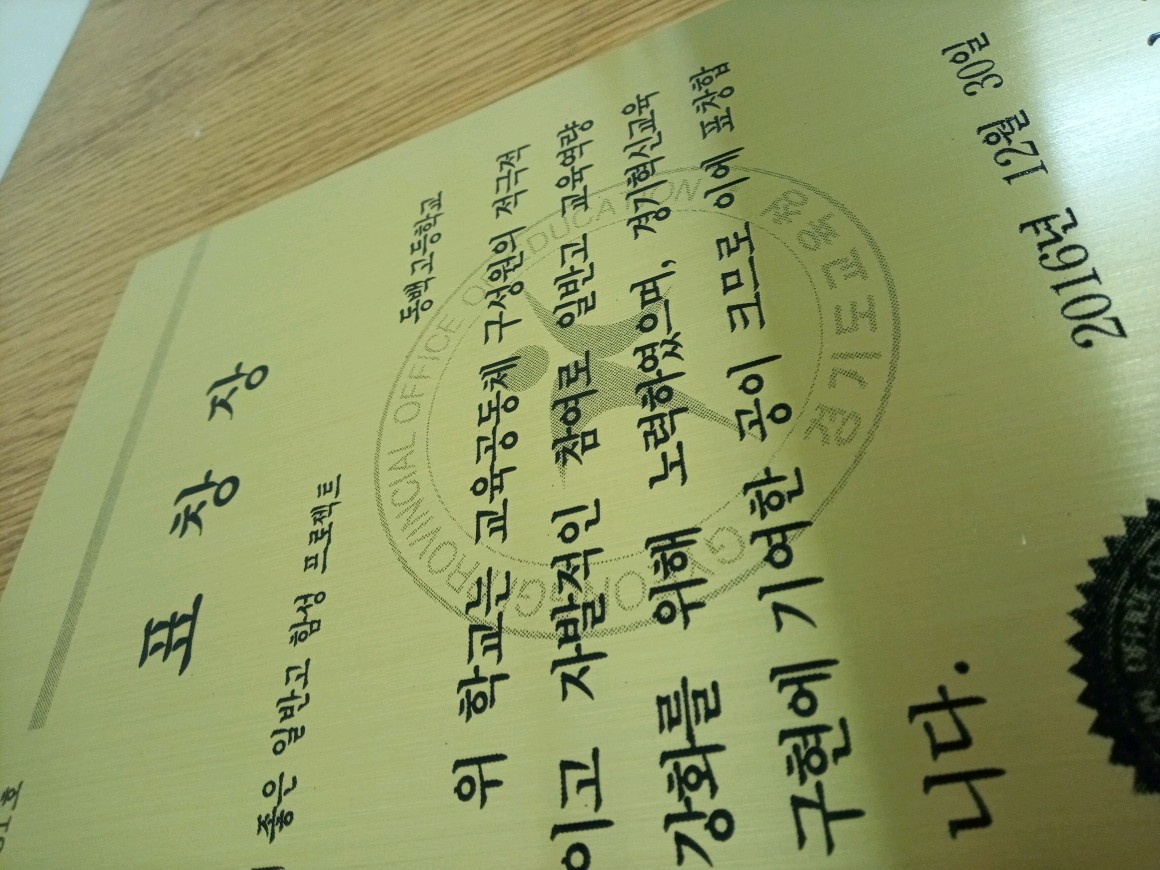 표 창 장
좋은 일반고 함성 프로젝트
동백고등학교
위 학교는 교육공동체 구성원의 적극적
이고 자발적인 참여로 일반고 교육역량
강화를 위해 노력하였으며, 경기혁신교육
구현에 기여한 공이 크므로 이에 표창합
니다.
2016년 12월 30일
GYEONGGI PROVINCIAL OFFICE OF EDUCATION
경기도교육청